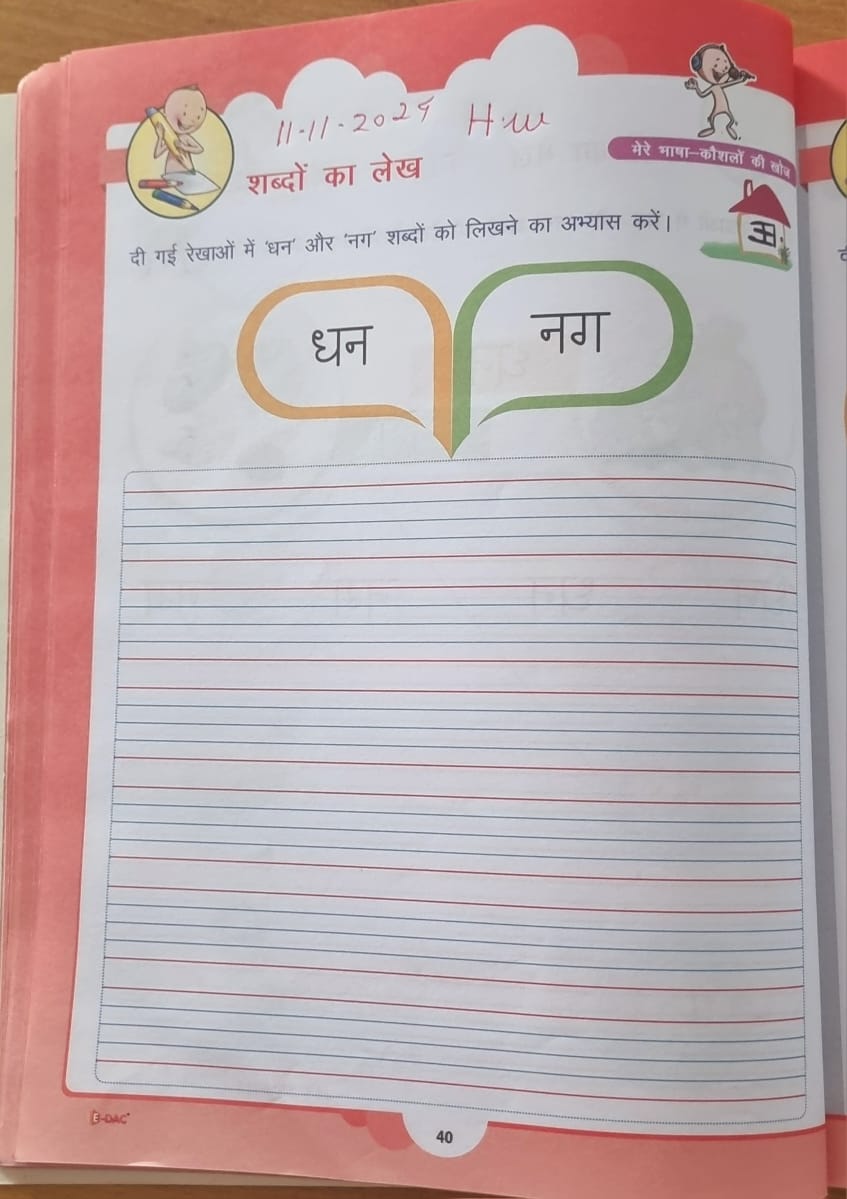 11-11-2025 H.W
शब्दों का लेख
मेरे भाषा–कौशलों की खोज
दी गई रेखाओं में 'धन' और 'नग' शब्दों को लिखने का अभ्यास करें।
धन
नग
E-DAC
40